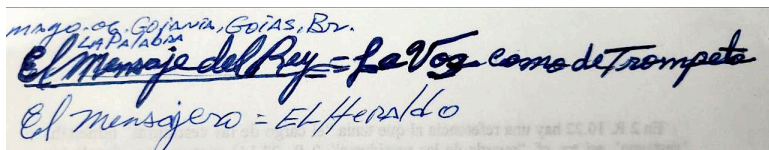 mayo.06. Goiania, Goiás, Br.
LA PALABRA
El Mensaje del Rey = La Voz como de Trompeta
El Mensajero = EL Heraldo
En 2 R. 10.22 hay una referencia al que tenía el cargo de las